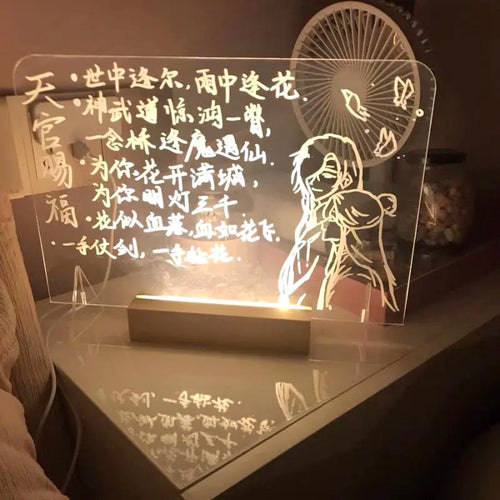 天官赐福
·世中逢尔，雨中逢花.
·神武道惊鸿一瞥，
一念桥逢魔遇仙.
·为你，花开满城，
为你明灯三千.
·花似血落，血如花飞.
·一手仗剑，一手拈花.